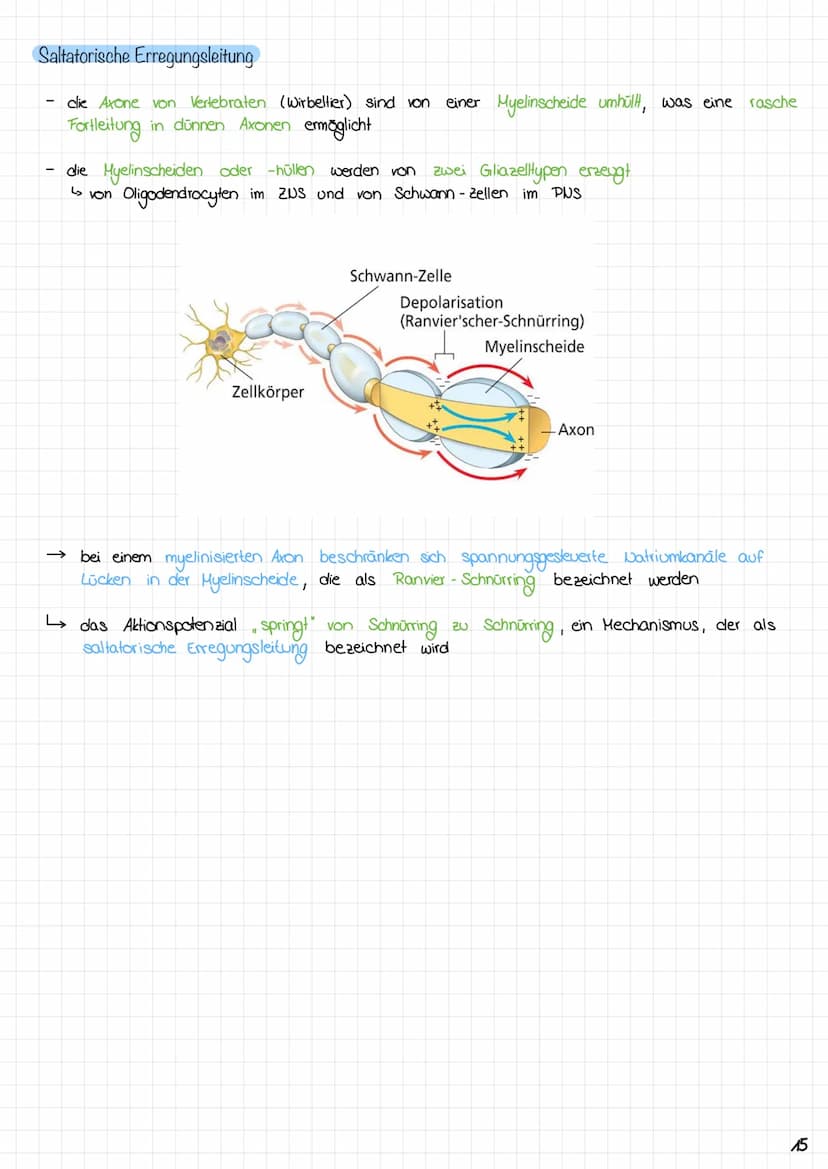 Saltatorische Erregungsleitung
- die Axone von Vertebraten (Wirbeltier) sind von einer Myelinscheide umhüllt, was eine rasche
Fortleitung in dünnen Axonen ermöglicht
- die Myelinscheiden oder -hüllen werden von zwei Gliazelltypen erzeugt
↳ von Oligodendrocyten im ZNS und von Schwann-Zellen im PNS
Schwann-Zelle
Depolarisation
(Ranvier'scher-Schnürring)
Myelinscheide
Zellkörper
Axon
→ bei einem myelinisierten Axon beschränken sich spannungsgesteuerte Natriumkanäle auf
Lücken in der Myelinscheide, die als Ranvier-Schnürring bezeichnet werden
↳ das Aktionspotenzial „springt" von Schnürring zu Schnürring, ein Mechanismus, der als
saltatorische Erregungsleitung bezeichnet wird
15